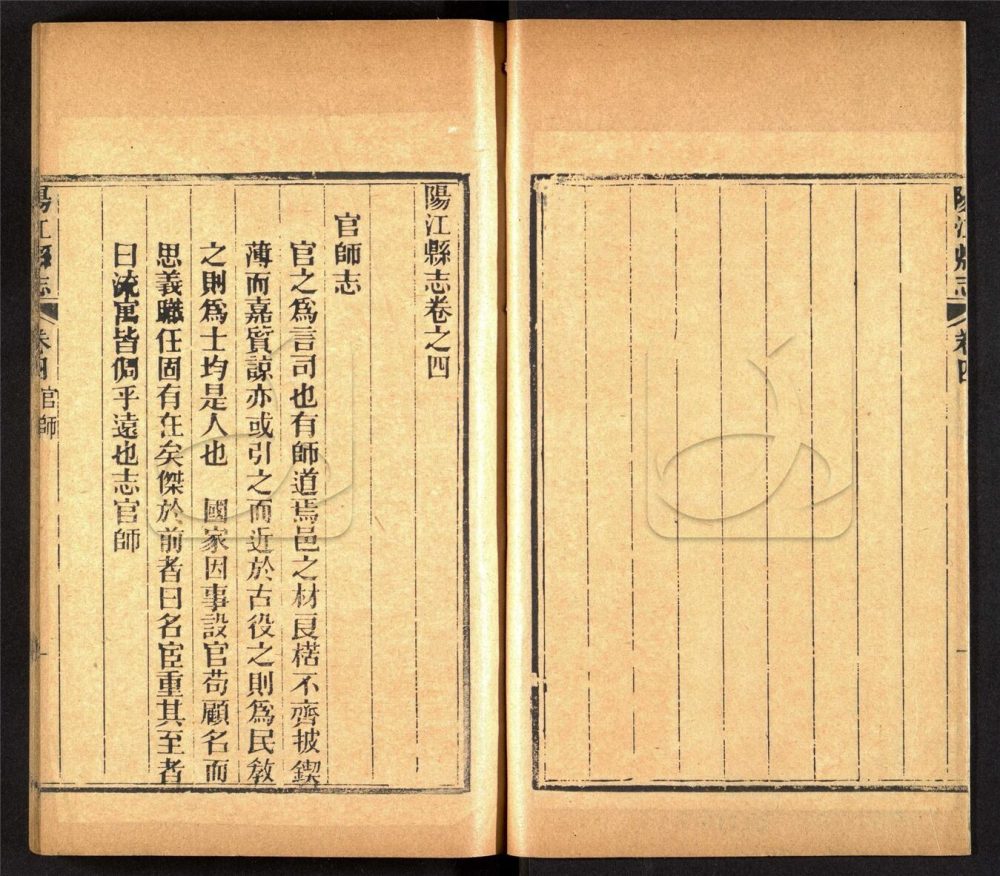 陽江縣志
卷四
陽江縣志卷之四
官師志
官之爲言司也有師道焉邑之材良楛不齊披鍥
薄而嘉質諒亦或引之而近於古役之則爲民敎
之則爲士均是人也　國家因事設官苟顧名而
思義職任固有在矣傑於前者曰名宦重其至者
曰流寓皆倜乎遠也志官師
陽江縣志
卷四
官師